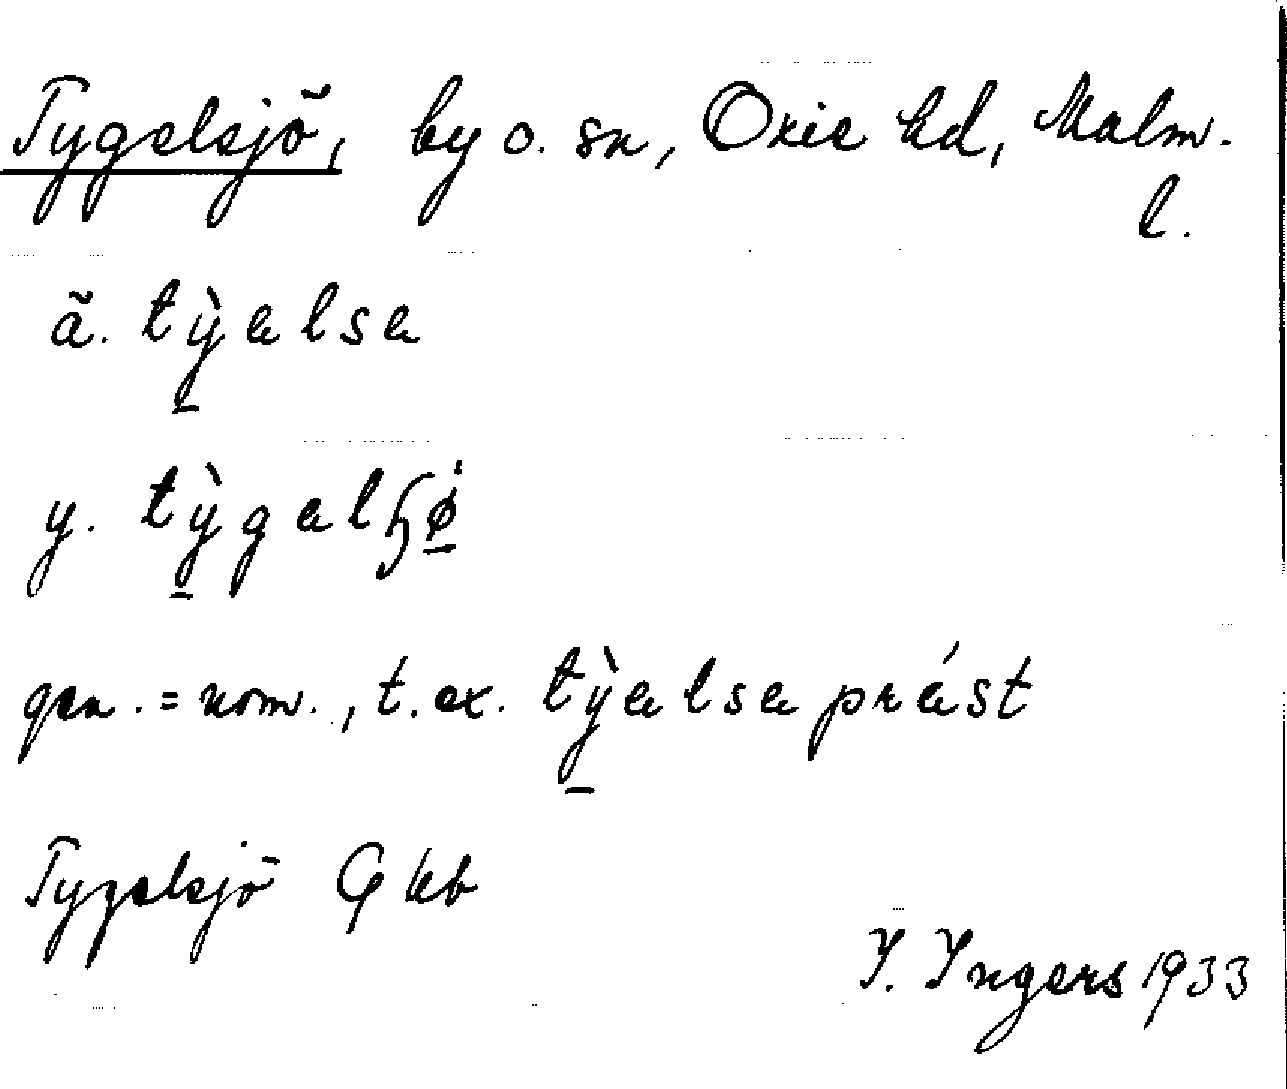 Tygelsjö, by o. sn, Oxie hd, Malm.
l.
ä. tỳ̱əlsə
y. tỳ̱gəlʂø̱
gen. = nom., t. ex. tỳ̱əlsəprást
Tygelsjö Gkb
I. Ingers 1933